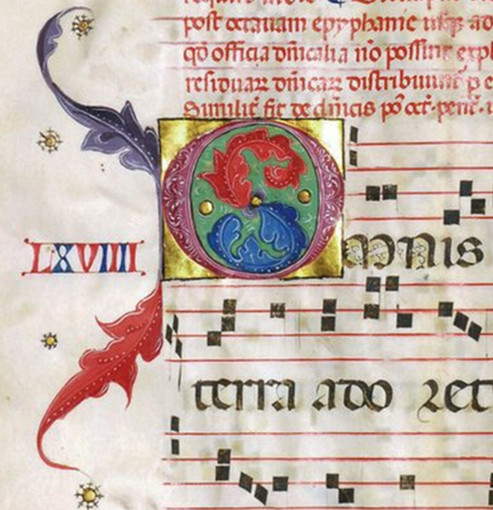 post octauam epyphanie usq; ad
qd officia dnicalia no possint expl
residuaz dnicaz distribuunt p e
Similit fit de dnicis po oct. pent.
LXVIIII
Omnis
terra ado ret